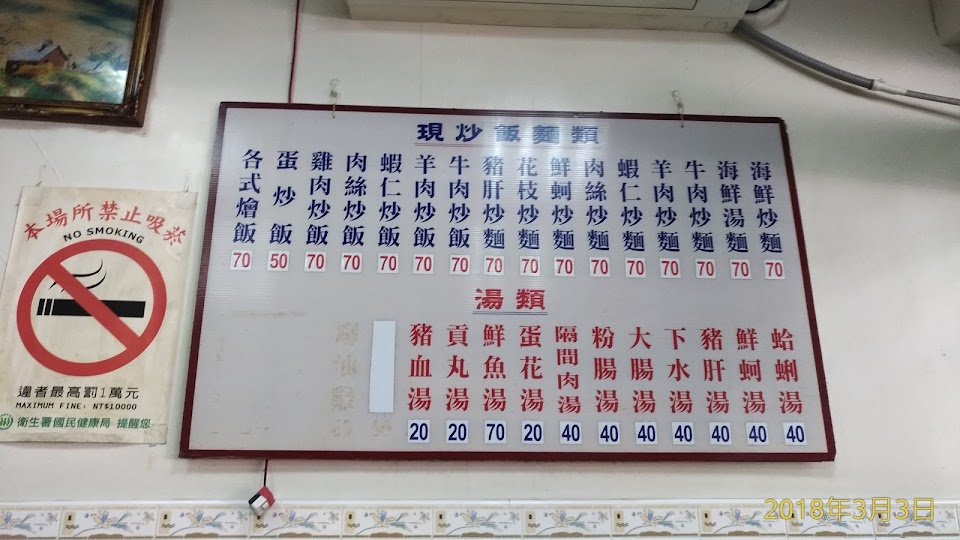 現炒飯麵類
海鮮炒麵 70
海鮮湯麵 70
牛肉炒麵 70
羊肉炒麵 70
蝦仁炒麵 70
肉絲炒麵 70
鮮蚵炒麵 70
花枝炒麵 70
豬肝炒麵 70
牛肉炒飯 70
羊肉炒飯 70
蝦仁炒飯 70
肉絲炒飯 70
雞肉炒飯 70
蛋炒飯 50
各式燴飯 70
湯類
蛤蜊湯 40
鮮蚵湯 40
豬肝湯 40
下水湯 40
大腸湯 40
粉腸湯 40
隔間肉湯 40
蛋花湯 20
鮮魚湯 70
貢丸湯 20
豬血湯 20
本場所禁止吸菸
NO SMOKING
違者最高罰1萬元
MAXIMUM FINE: NT$10000
衛生署國民健康局 提醒您
2018年3月3日